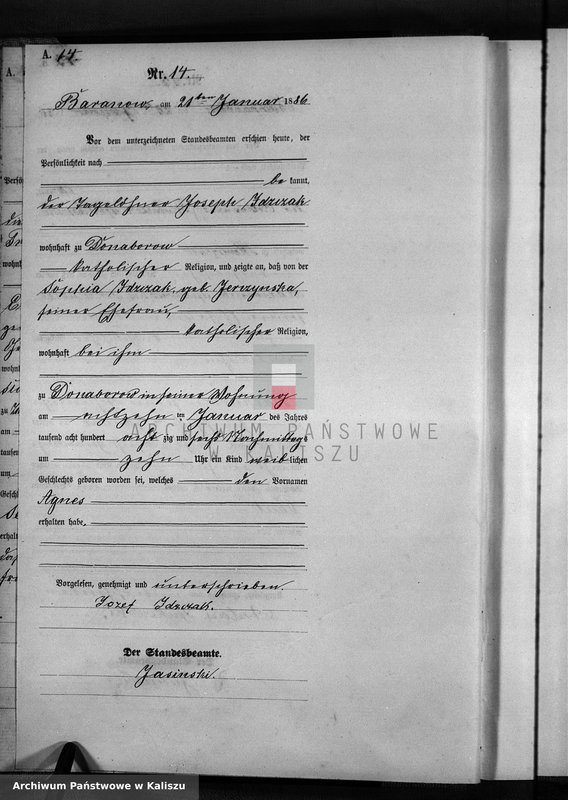 A. 14.
Nr. 14.
Baranow, am 21ten Januar 1886
Vor dem unterzeichneten Standesbeamten erschien heute, der
Persönlichkeit nach
be kannt,
der Tagelöhner Joseph Idzczak
wohnhaft zu Donaborow
katholischer Religion, und zeigte an, daß von der
Sophia Idzczak, geb. Jerczynska,
seiner Ehefrau,
katholischer Religion,
wohnhaft bei ihm
zu Donaborow in seiner Wohnung
am achtzehn ten Januar des Jahres
tausend acht hundert acht zig und sechs Nachmittags
um zehn Uhr ein Kind weib lichen
Geschlechts geboren worden sei, welches den Vornamen
Agnes
erhalten habe.
Vorgelesen, genehmigt und unterschrieben.
Jozef Idzczak.
Der Standesbeamte.
Jasinski.
ARCHIWUM PAŃSTWOWE
W KALISZU
Archiwum Państwowe w Kaliszu